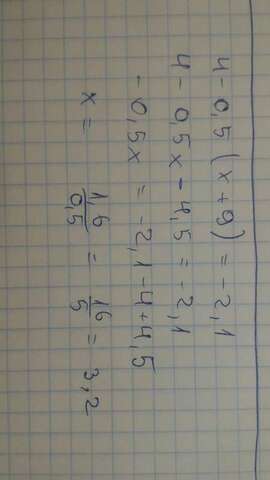 4 - 0,5 (x + 9) = -2,1
4 - 0,5x - 4,5 = -2,1
-0,5x = -2,1 - 4 + 4,5
x = 1,6/0,5 = 16/5 = 3,2